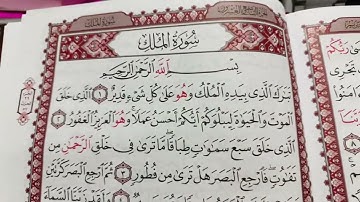 سُورَةُ المُلْكِ
سُورَةُ المُلْكِ
بِسْمِ اللَّهِ الرَّحْمَٰنِ الرَّحِيمِ
تَبَٰرَكَ الَّذِي بِيَدِهِ الْمُلْكُ وَهُوَ عَلَىٰ كُلِّ شَيْءٍ قَدِيرٌ ١ الَّذِي خَلَقَ
الْمَوْتَ وَالْحَيَوٰةَ لِيَبْلُوَكُمْ أَيُّكُمْ أَحْسَنُ عَمَلًا وَهُوَ الْعَزِيزُ الْغَفُورُ ٢
الَّذِي خَلَقَ سَبْعَ سَمَٰوَٰتٍ طِبَاقًا مَّا تَرَىٰ فِي خَلْقِ الرَّحْمَٰنِ مِن
تَفَٰوُتٍ فَارْجِعِ الْبَصَرَ هَلْ تَرَىٰ مِن فُطُورٍ ٣ ثُمَّ ارْجِعِ الْبَصَرَ كَرَّتَيْنِ